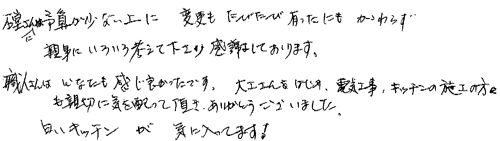 予算が少ない上に 変更も たびたび 有ったにもかかわらず
親身にいろいろ考えて下さり感謝しております。
職人さんは どなたも 感じ良かったです。 大工さんをはじめ、電気工事、キッチンの施工の方々
も親切に気を配って頂き、ありがとうございました。
白いキッチン が 気に入ってます!